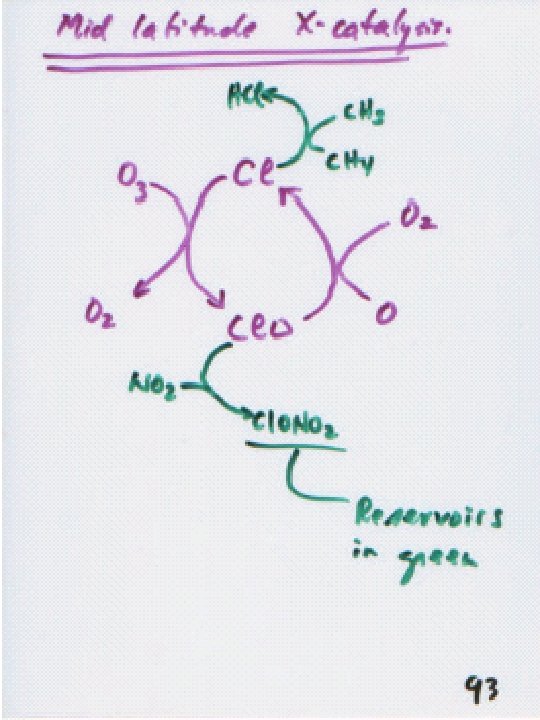 Mid latitude X-catalysis.
HCl
CH3
Cl
CH4
O3
O2
O2
ClO
O
NO2
ClONO2
Reservoirs
in green
93